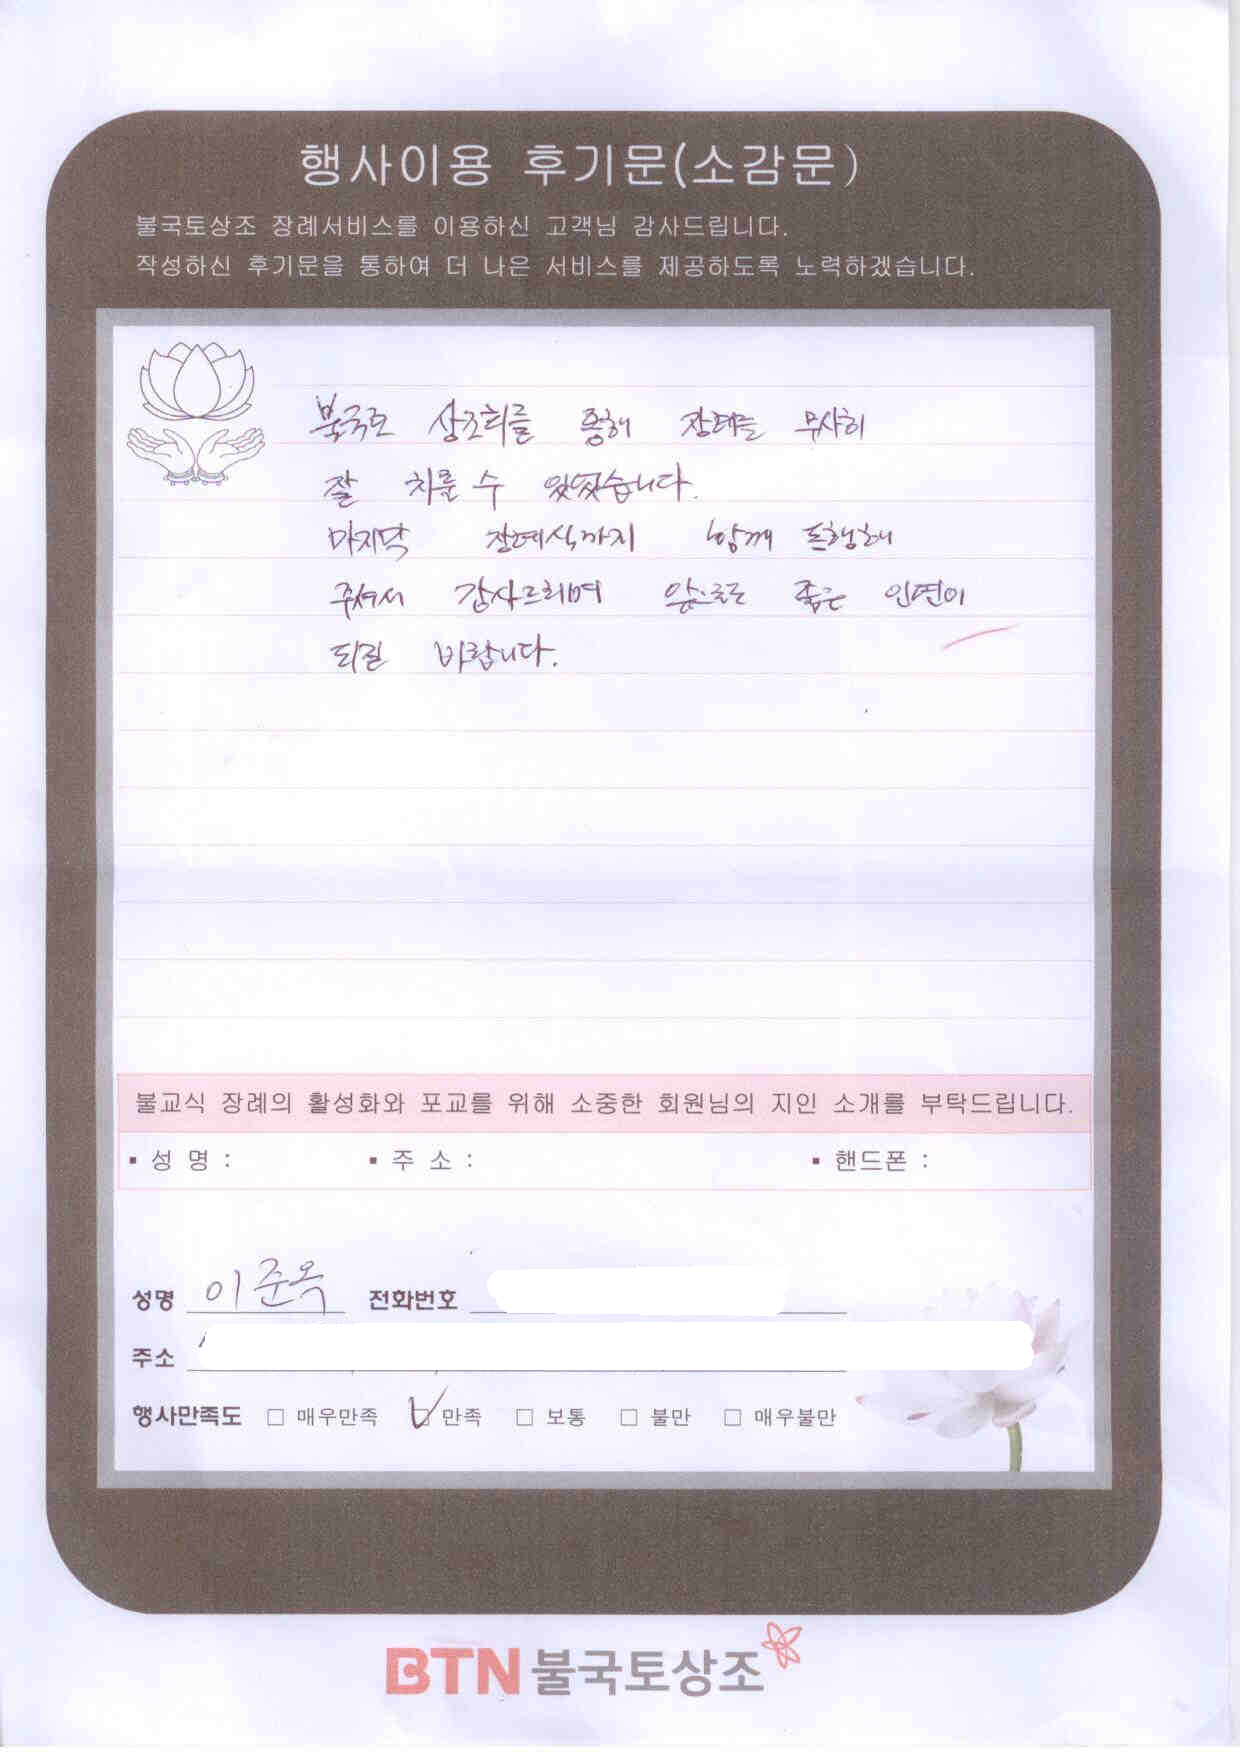 행사이용 후기문(소감문)
불국토상조 장례서비스를 이용하신 고객님 감사드립니다.
작성하신 후기문을 통하여 더 나은 서비스를 제공하도록 노력하겠습니다.
불국토 상조회를 통해 장례를 무사히
잘 치룰 수 있었습니다.
마지막 장례식까지 함께 동행해
주셔서 감사드리며 앞으로도 좋은 인연이
되길 바랍니다.
불교식 장례의 활성화와 포교를 위해 소중한 회원님의 지인 소개를 부탁드립니다.
▪ 성 명 : ▪ 주 소 : ▪ 핸드폰 :
성명 이준옥 전화번호
주소
행사만족도 □ 매우만족 ☑ 만족 □ 보통 □ 불만 □ 매우불만
BTN 불국토상조